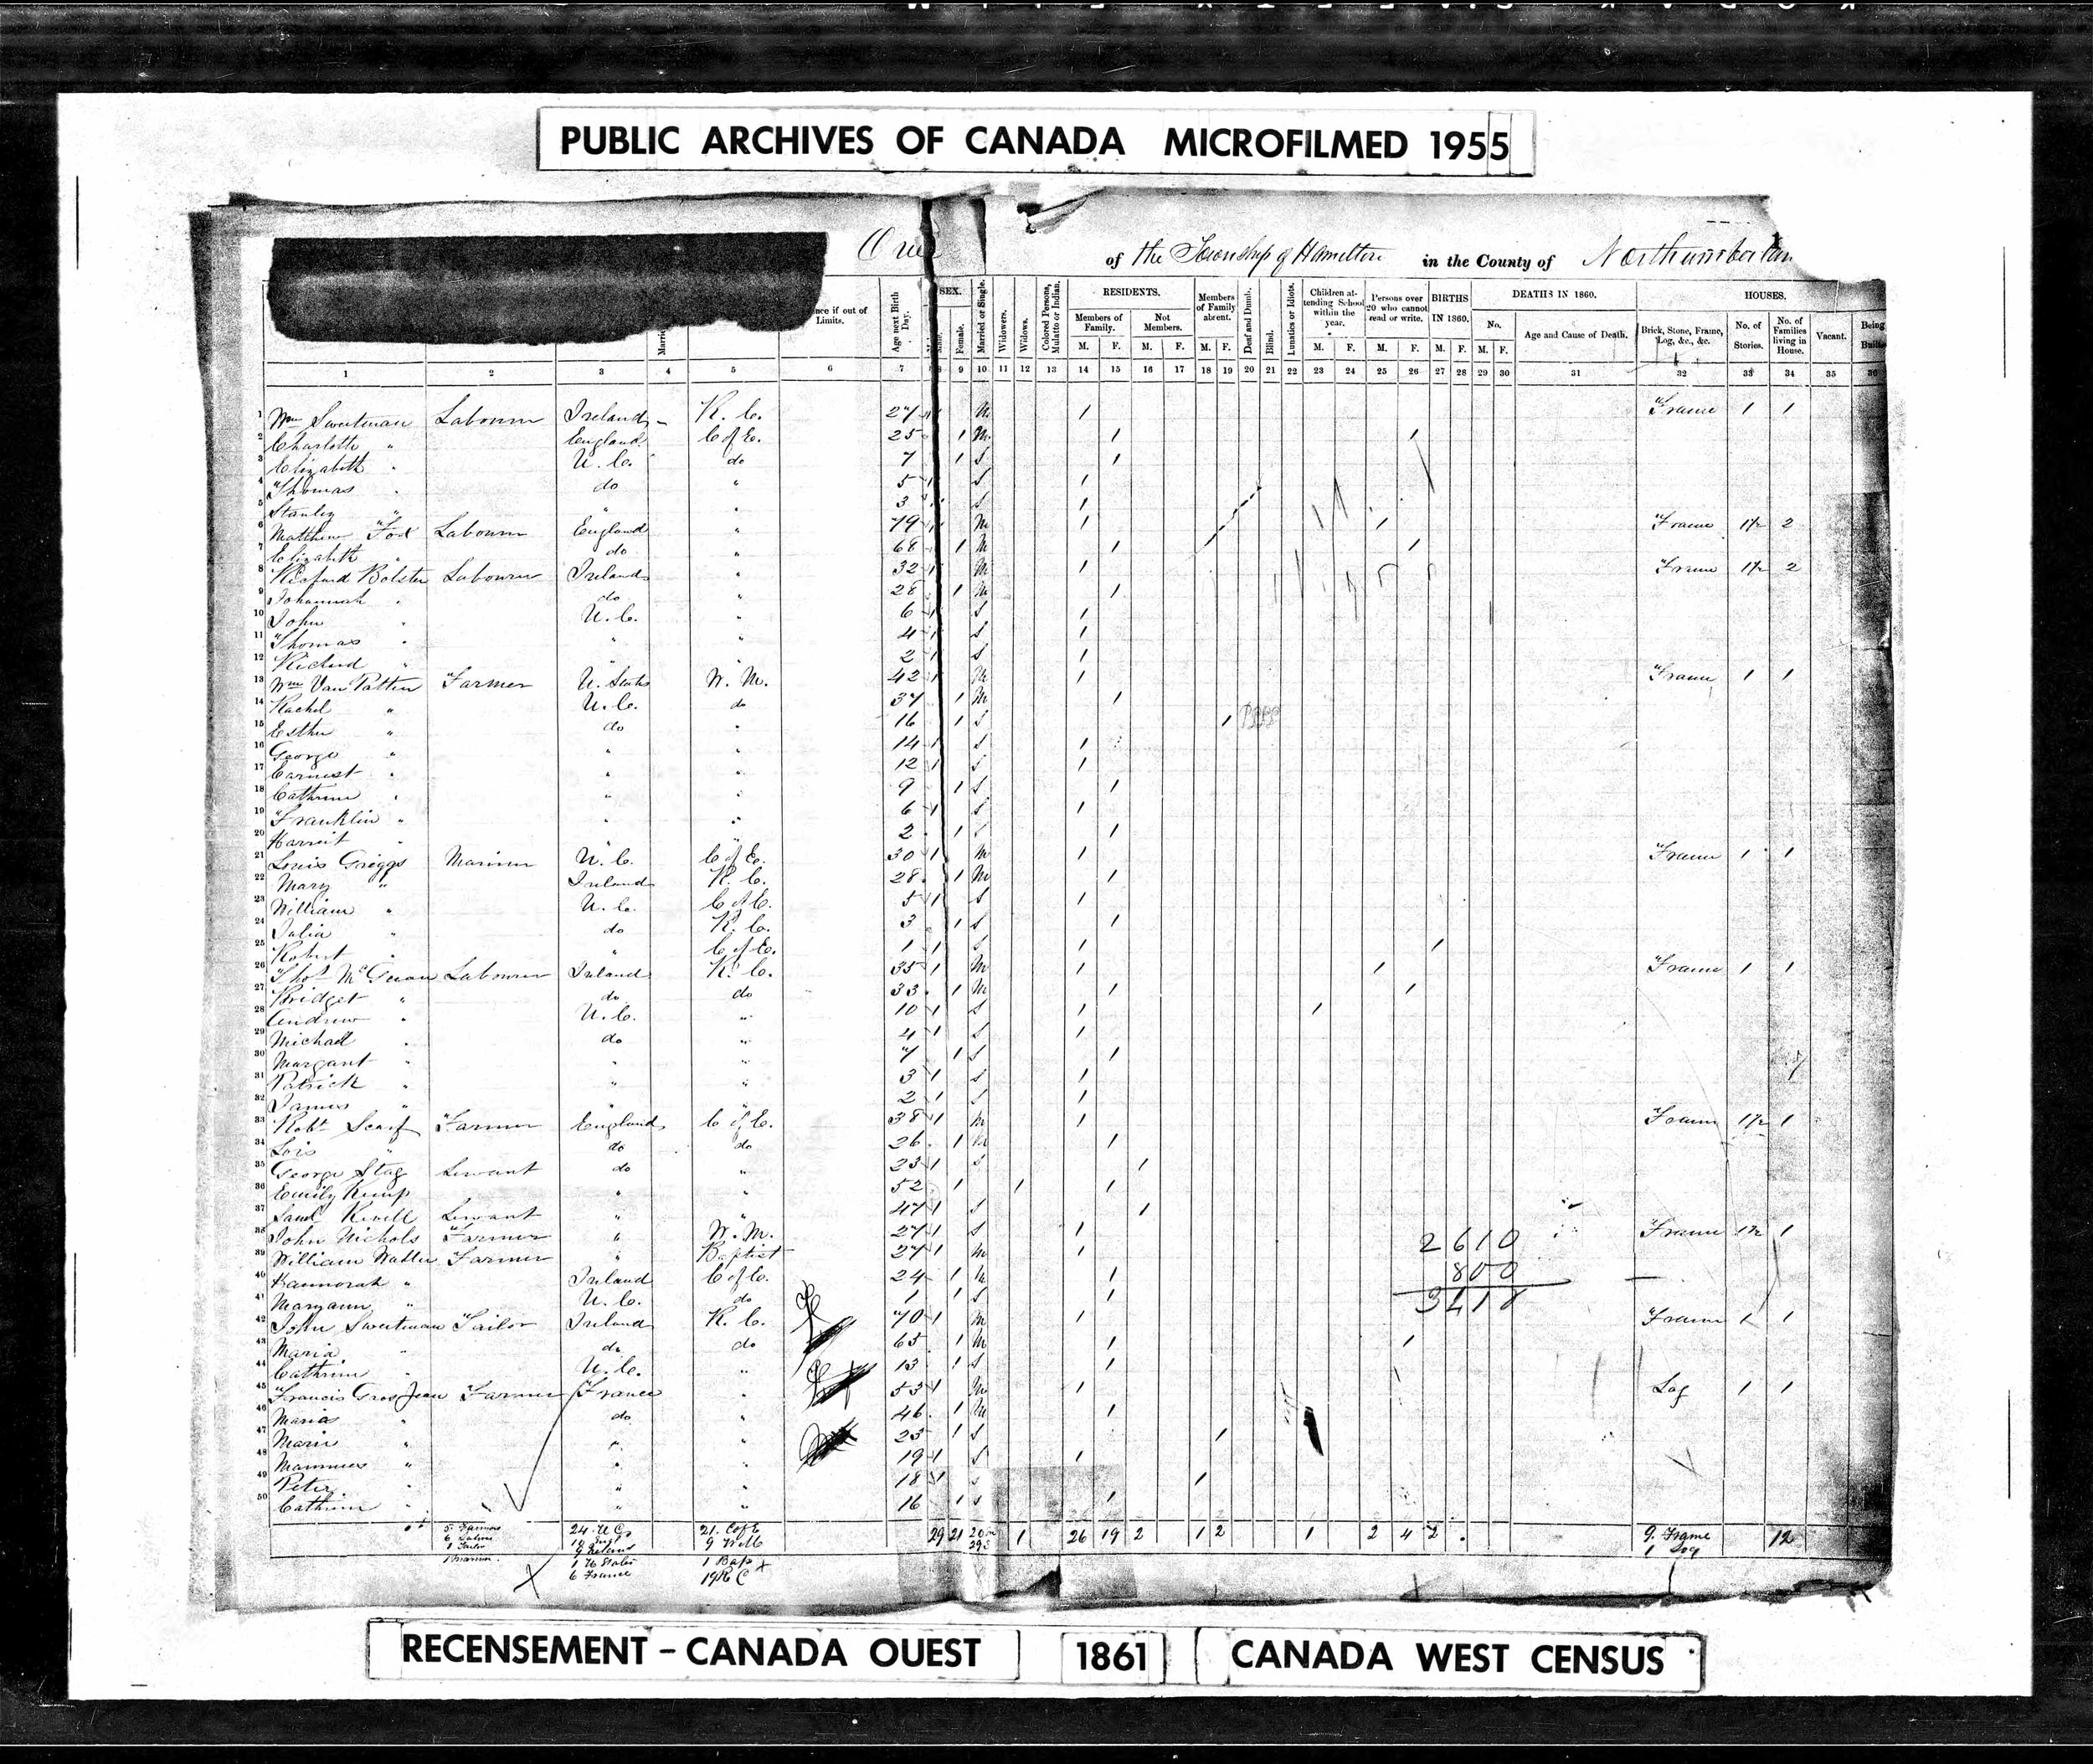 PUBLIC ARCHIVES OF CANADA MICROFILMED 1955
of the Township of Hamilton in the County of
nce if out of Limits.
Age next Birth Day.
SEX.
Female.
Married or Single.
Widowers.
Widows.
Colored Persons, Mulatto or Indian.
RESIDENTS.
Members of Family.
Not Members.
Members of Family absent.
Deaf and Dumb.
Blind.
Lunatics or Idiots.
Children attending School within the year.
Persons over 20 who cannot read or write.
BIRTHS IN 1860.
DEATHS IN 1860.
No.
Age and Cause of Death.
HOUSES.
Brick, Stone, Frame, Log, &c., &c.
No. of Stories.
No. of Families living in House.
Vacant.
Being Built
M. F. M. F. M. F. M. F. M. F. M. F. M. F.
1 2 3 4 5 6 7 8 9 10 11 12 13 14 15 16 17 18 19 20 21 22 23 24 25 26 27 28 29 30 31 32 33 34 35 36
1 Wm Sweetman Labourer Ireland R. C. 27 1 M 1 Frame 1 1
2 Charlotte " England C of E. 25 1 M. 1 1
3 Elizabeth " U. C. do 7 1 S 1
4 Thomas " do " 5 1 S 1
5 Stanley " " " 3 S 1
6 Matthew Labourer England " 79 1 M 1 1 Frame 1½ 2
7 Elizabeth " do " 68 1 M 1 1
8 Richard Bolster Labourer Ireland " 32 1 M 1 Frame 1½ 2
9 Johannah " do " 28 1 M 1
10 John " U. C. " 6 1 S 1
11 Thomas " " " 4 1 S 1
12 Richard " " " 2 1 S 1
13 Wm Van Patten Farmer U. States W. M. 42 1 M 1 Frame 1 1
14 Rachel " U. C. do 37 1 M 1
15 Esther " do " 16 1 S 1
16 George " " " 14 1 S 1
17 " " " 12 1 S 1
18 Cathrine " " " 9 1 S 1
19 Franklin " " " 6 1 S 1
20 Harriet " " " 2 1 S 1
21 Louis Griggs Mariner U. C. C of E. 30 1 M 1 Frame 1 1
22 Mary " Ireland R. C. 28 1 M 1
23 William " U. C. C of E. 5 1 S 1
24 Julia " do R. C. 3 1 S 1
25 Robert " " C of E. 1 1 S 1 1
26 Thos Labourer Ireland R. C. 35 1 M 1 1 Frame 1 1
27 Bridget " do do 33 1 M 1 1
28 Andrew " U. C. " 10 1 S 1 1
29 Michael " do " 4 1 S 1
30 Margaret " " " 7 1 S 1
31 Patrick " " " 3 1 S 1
32 James " " " 2 1 S 1
33 Robt Scarf Farmer England C of E. 38 1 M 1 Frame 1½ 1
34 Lois " do do 26 1 M 1
35 George Stag Servant do " 23 1 S 1
36 Emily Kemp " " 52 1 1 1
37 Saml Servant " " 47 1 S 1
38 John Nichols Farmer " W. M. 27 1 S 1 Frame 1½ 1
39 William Farmer " Baptist 27 1 M 1
40 Hannorah " Ireland C of E. 24 1 M 1
41 Maryann " U. C. do 1 1 S 1
42 John Sweetman Tailor Ireland R. C. 70 1 M 1 Frame 1 1
43 Maria " do do 65 1 M 1 1
44 Cathrine " U. C. " 13 1 S 1
45 Francis Gros Jean Farmer France " 53 1 M 1 Log 1 1
46 Maria " do " 46 1 M 1
47 Marie " " " 23 1 S 1
48 " " " 19 1 S 1
49 Peter " " " 18 1 S 1
50 Cathrine " " " 16 1 S 1
2610
800
5 Farmers 24 U Cs 21 C of E 29 21 20 m 1 26 19 2 1 2 1 2 4 2 9 Frame 12
9 W M 29 S 1 Log
1 Tailor 9 Ireland
1 Mariner 1 U States 1 Bap
6 France 19 R C
RECENSEMENT – CANADA OUEST 1861 CANADA WEST CENSUS